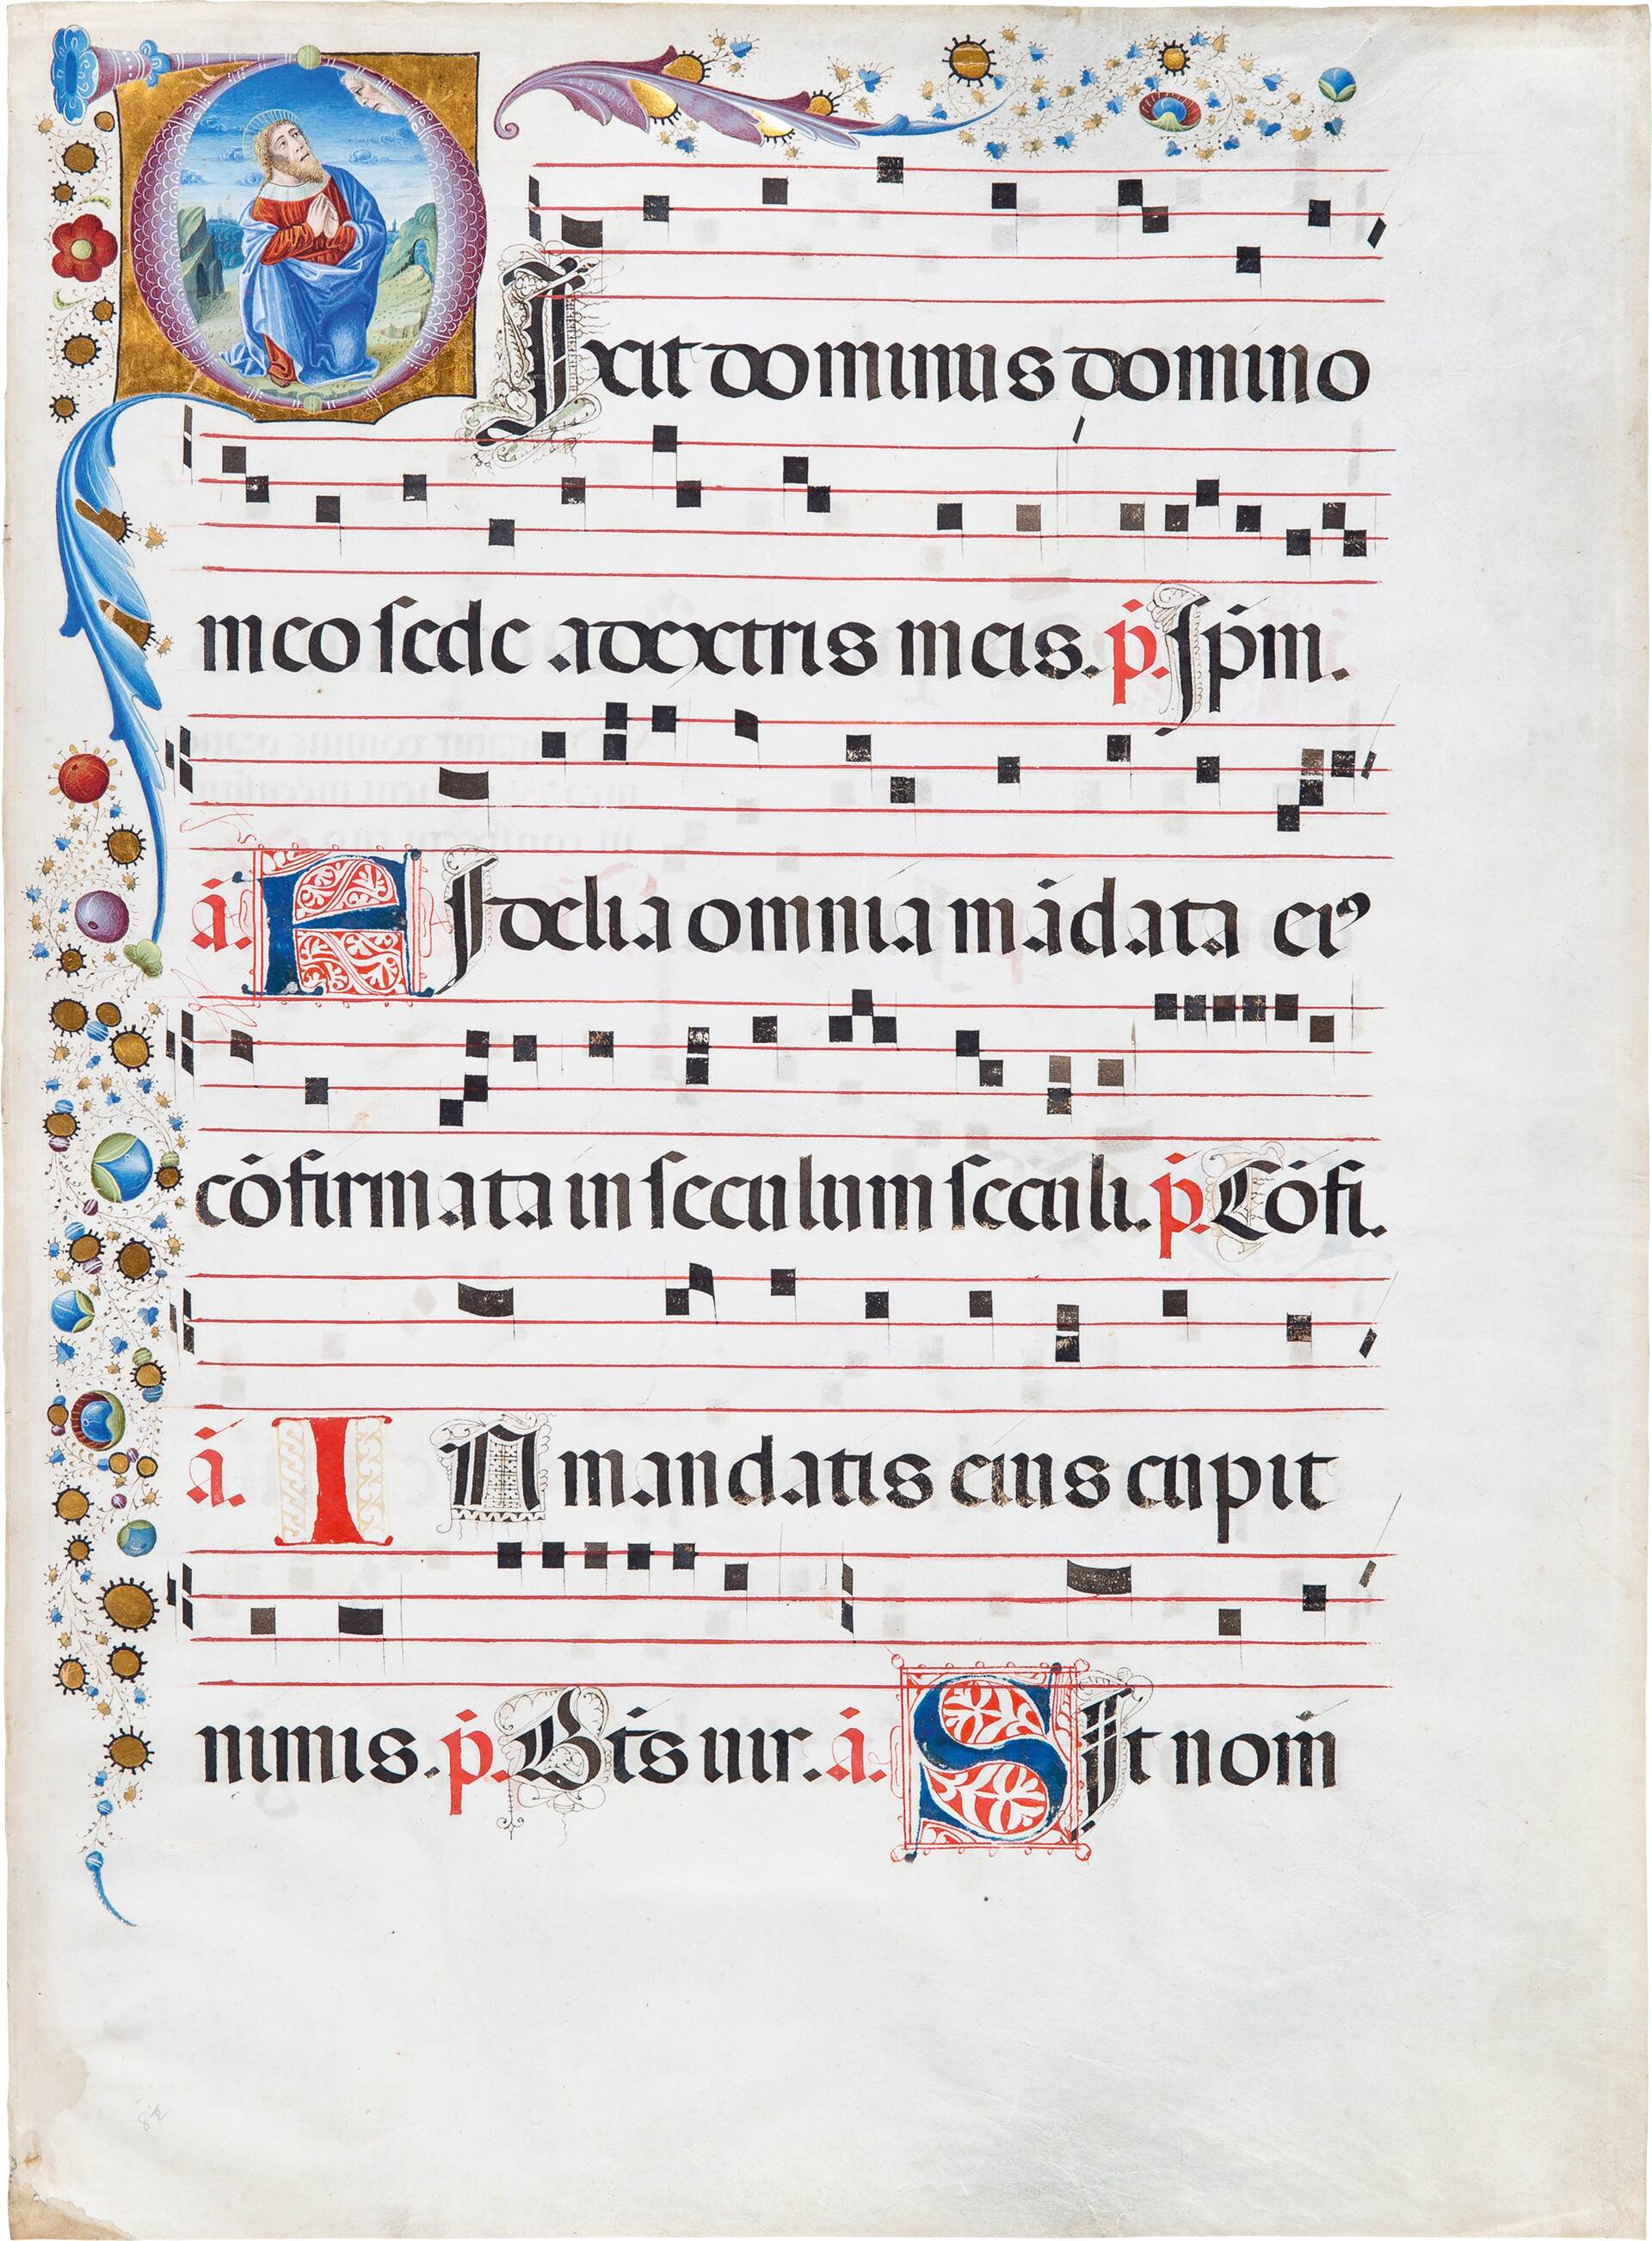 DIxit dominus domino
meo sede adextris meis. p. Ip̄m.
ā. FIdelia omnia mādata eiꝰ
cōfirmata in seculum seculi. p. Cōfi.
ā. IN mandatis eius cupit
nimis. p. Bt̄s uir. ā. SIt nom̄